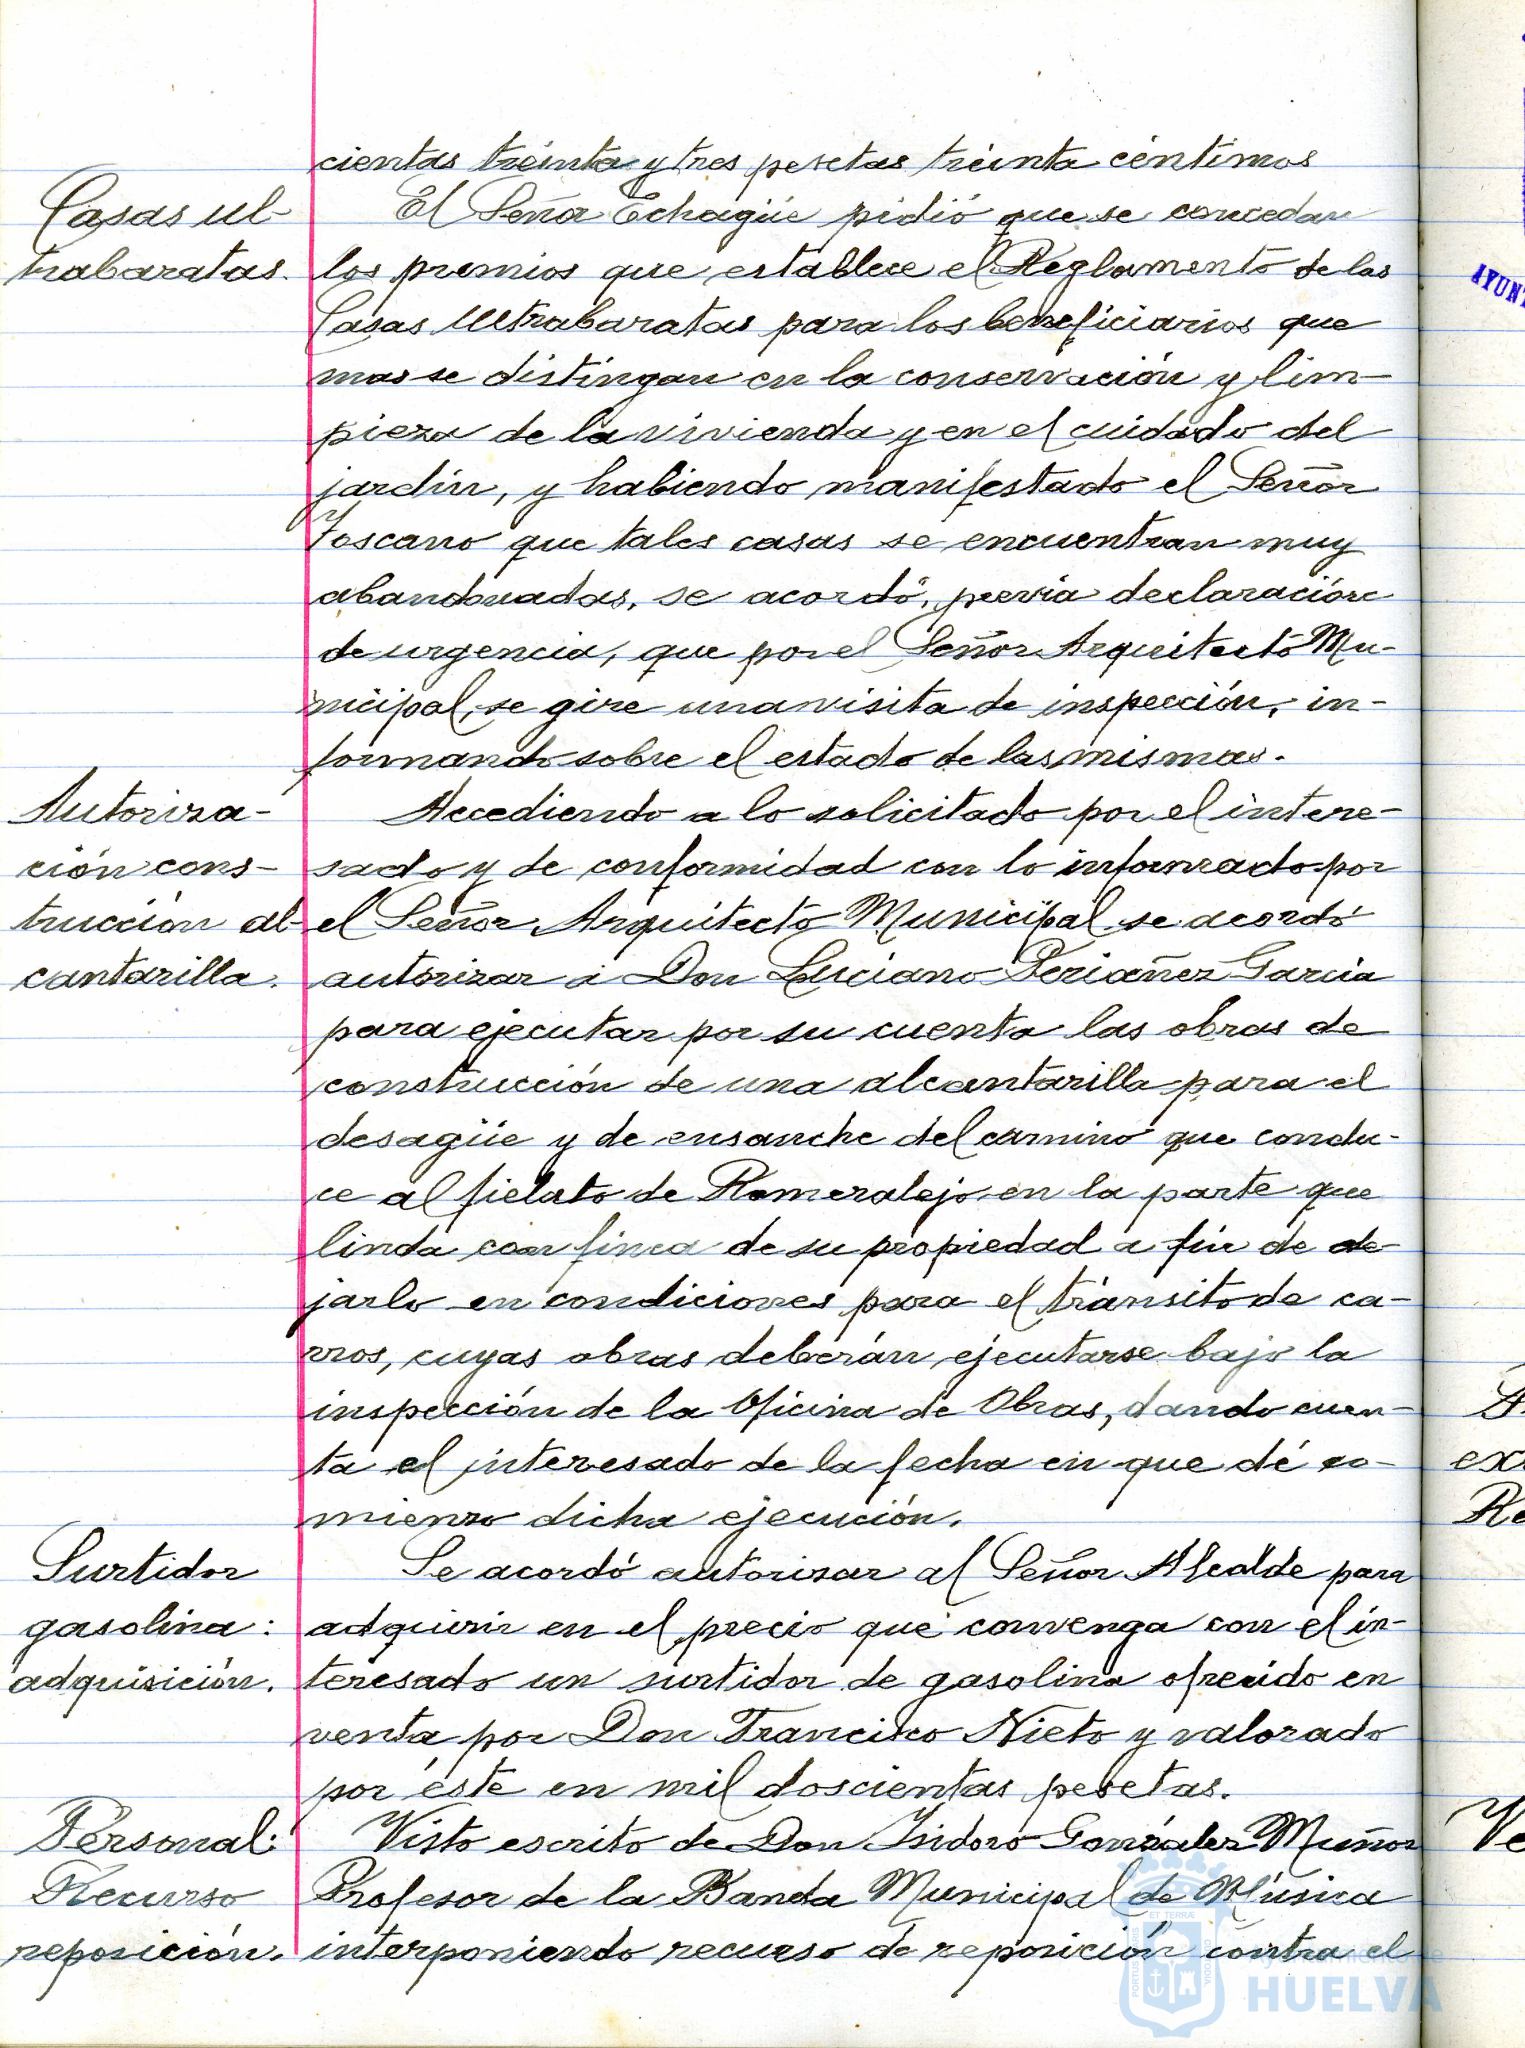 cientas treinta y tres pesetas treinta céntimos
Casas ul-
trabaratas.
El Señor Echagüe pidió que se concedan
los premios que establece el Reglamento de las
Casas Ultrabaratas para los beneficiarios que
mas se distingan en la conservación y lim-
pieza de la vivienda y en el cuidado del
jardín, y habiendo manifestado el Señor
Toscano que tales casas se encuentran muy
abandonadas, se acordó, previa declaración
de urgencia, que por el Señor Arquitecto Mu-
nicipal, se gire una visita de inspección, in-
formando sobre el estado de las mismas.
Autoriza-
ción cons-
trucción al-
cantarilla.
Accediendo a lo solicitado por el intere-
sado y de conformidad con lo informado por
el Señor Arquitecto Municipal se acordó
autorizar a Don Luciano Periañez García
para ejecutar por su cuenta las obras de
construcción de una alcantarilla para el
desagüe y de ensanche del camino que condu-
ce al fielato de Romeralejo en la parte que
linda con finca de su propiedad a fin de de
jarlo en condiciones para el tránsito de ca-
rros, cuyas obras deberán ejecutarse bajo la
inspección de la Oficina de Obras, dando cuen-
ta el interesado de la fecha en que dé co-
mienzo dicha ejecución.
Surtidor
gasolina:
adquisición.
Se acordó autorizar al Señor Alcalde para
adquirir en el precio que convenga con el in-
teresado un surtidor de gasolina ofrecido en
venta por Don Francisco Nieto y valorado
por éste en mil doscientas pesetas.
Personal:
Recurso
reposición.
Visto escrito de Don Isidoro González Muñoz
Profesor de la Banda Municipal de Música
interponiendo recurso de reposición contra el
Ayuntamiento de
HUELVA
AYUNT
ex
Re
Ve